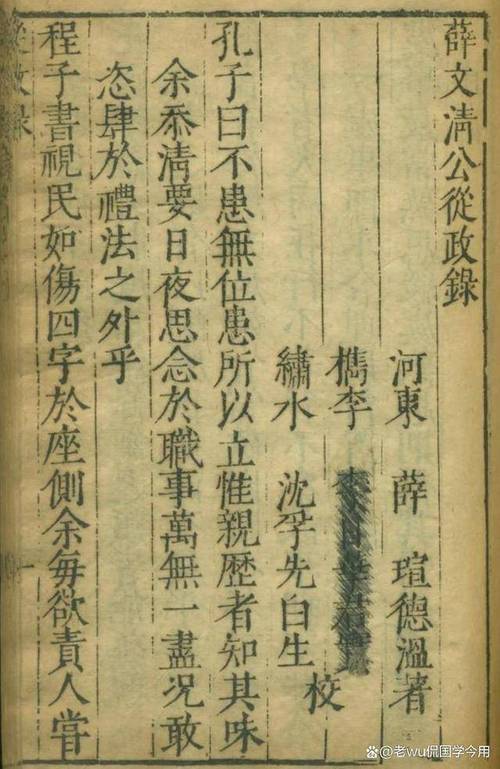 薛文清公從政錄
河東 薛 瑄德溫著
檇李
繡水 沈孚先白生 校
孔子曰不患無位患所以立惟親歴者知其味
余忝清要日夜思念於職事萬無一盡况敢
恣肆於禮法之外乎
程子書視民如傷四字於座側余每欲責人嘗
老wu侃国学今用